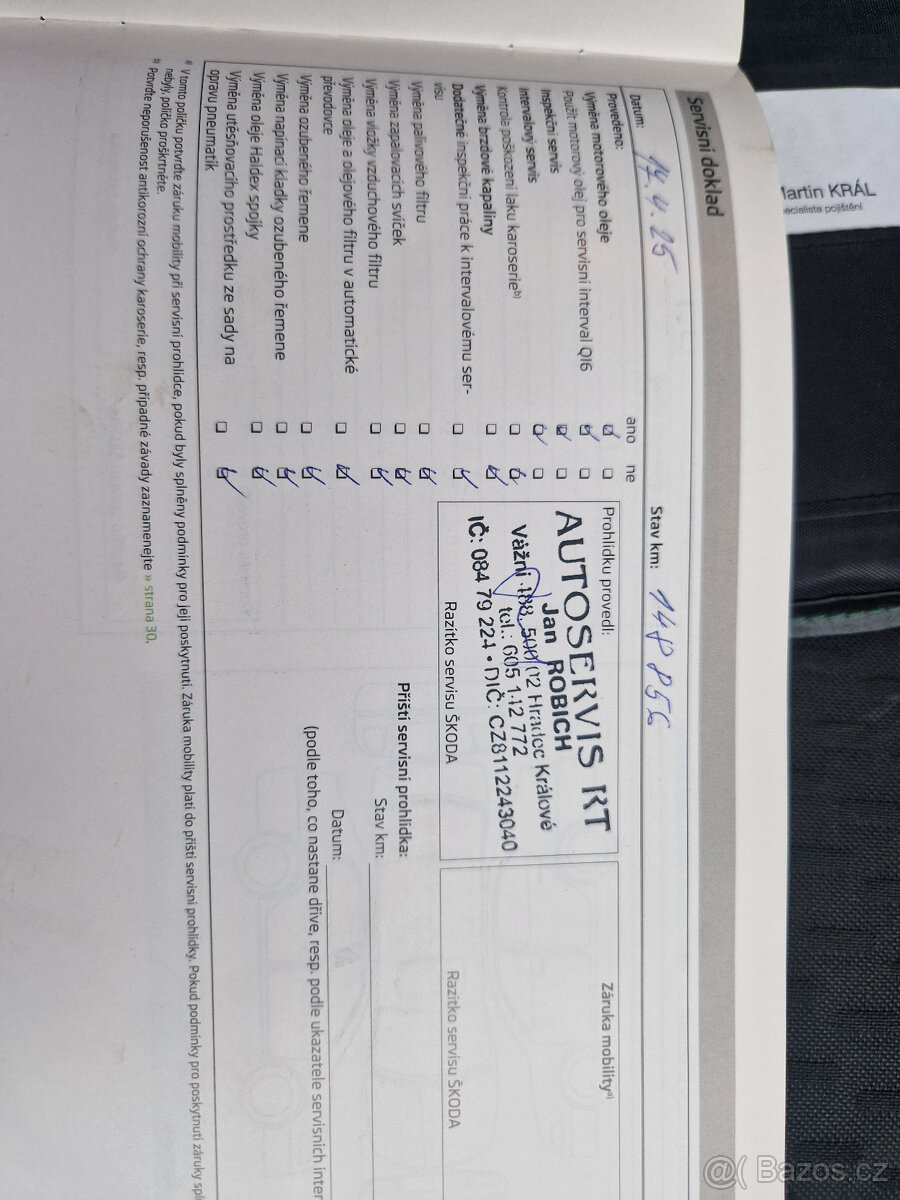 Servisní doklad
Datum: 17.4.25 Stav km: 148 856
Provedeno: ano ne
Výměna motorového oleje
Použít motorový olej pro servisní interval QI6
Inspekční servis
Intervalový servis
Kontrola poškození laku karoserie b)
Výměna brzdové kapaliny
Dodatečné inspekční práce k intervalovému ser-
visu
Výměna palivového filtru
Výměna zapalovacích svíček
Výměna vložky vzduchového filtru
Výměna oleje a olejového filtru v automatické
převodovce
Výměna ozubeného řemene
Výměna napínací kladky ozubeného řemene
Výměna oleje Haldex spojky
Výměna utěsňovacího prostředku ze sady na
opravu pneumatik
Prohlídku provedl:
AUTOSERVIS RT
Jan ROBICH
Vážní 188, 500 02 Hradec Králové
tel.: 605 142 772
IČ: 084 79 224 • DIČ: CZ8112243040
Razítko servisu ŠKODA
Záruka mobility a)
Razítko servisu ŠKODA
Příští servisní prohlídka:
Stav km:
Datum:
(podle toho, co nastane dříve, resp. podle ukazatele servisních inter
a) V tomto políčku potvrďte záruku mobility při servisní prohlídce, pokud byly splněny podmínky pro její poskytnutí. Záruka mobility platí do příští servisní prohlídky. Pokud podmínky pro poskytnutí záruky spl
nebyly, políčko proškrtněte.
b) Potvrďte neporušenost antikorozní ochrany karoserie, resp. případné závady zaznamenejte » strana 30.
Martin KRÁL
specialista pojištění
@( Bazos.cz